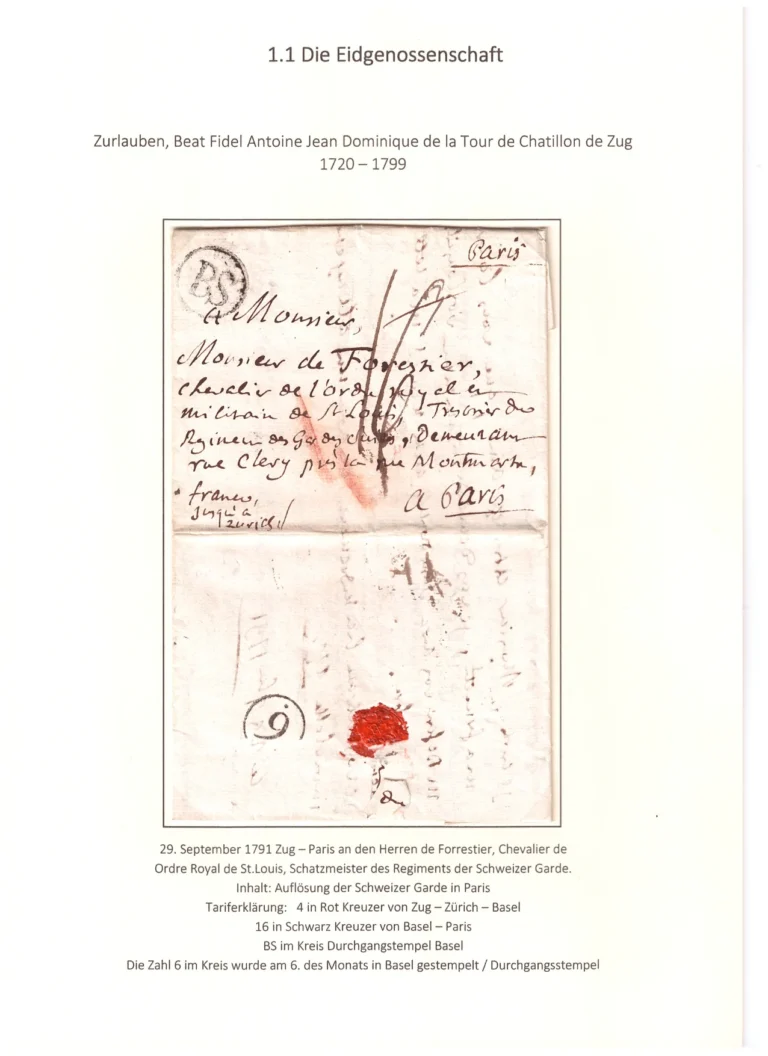 1.1 Die Eidgenossenschaft
Zurlauben, Beat Fidel Antoine Jean Dominique de la Tour de Chatillon de Zug
1720 – 1799
BS
Paris
16
a Monsieur,
Monsieur de Forestier,
chevalier de l'ordre royal et
militaire de St Louis, Tresorier du
Regiment des Gardes Suisses, Demeurant
rue Clery près la rue Montmartre,
a Paris
franco,
jusqu'à
Zurich
6
29. September 1791 Zug – Paris an den Herren de Forrestier, Chevalier de
Ordre Royal de St.Louis, Schatzmeister des Regiments der Schweizer Garde.
Inhalt: Auflösung der Schweizer Garde in Paris
Tariferklärung: 4 in Rot Kreuzer von Zug – Zürich – Basel
16 in Schwarz Kreuzer von Basel – Paris
BS im Kreis Durchgangstempel Basel
Die Zahl 6 im Kreis wurde am 6. des Monats in Basel gestempelt / Durchgangsstempel